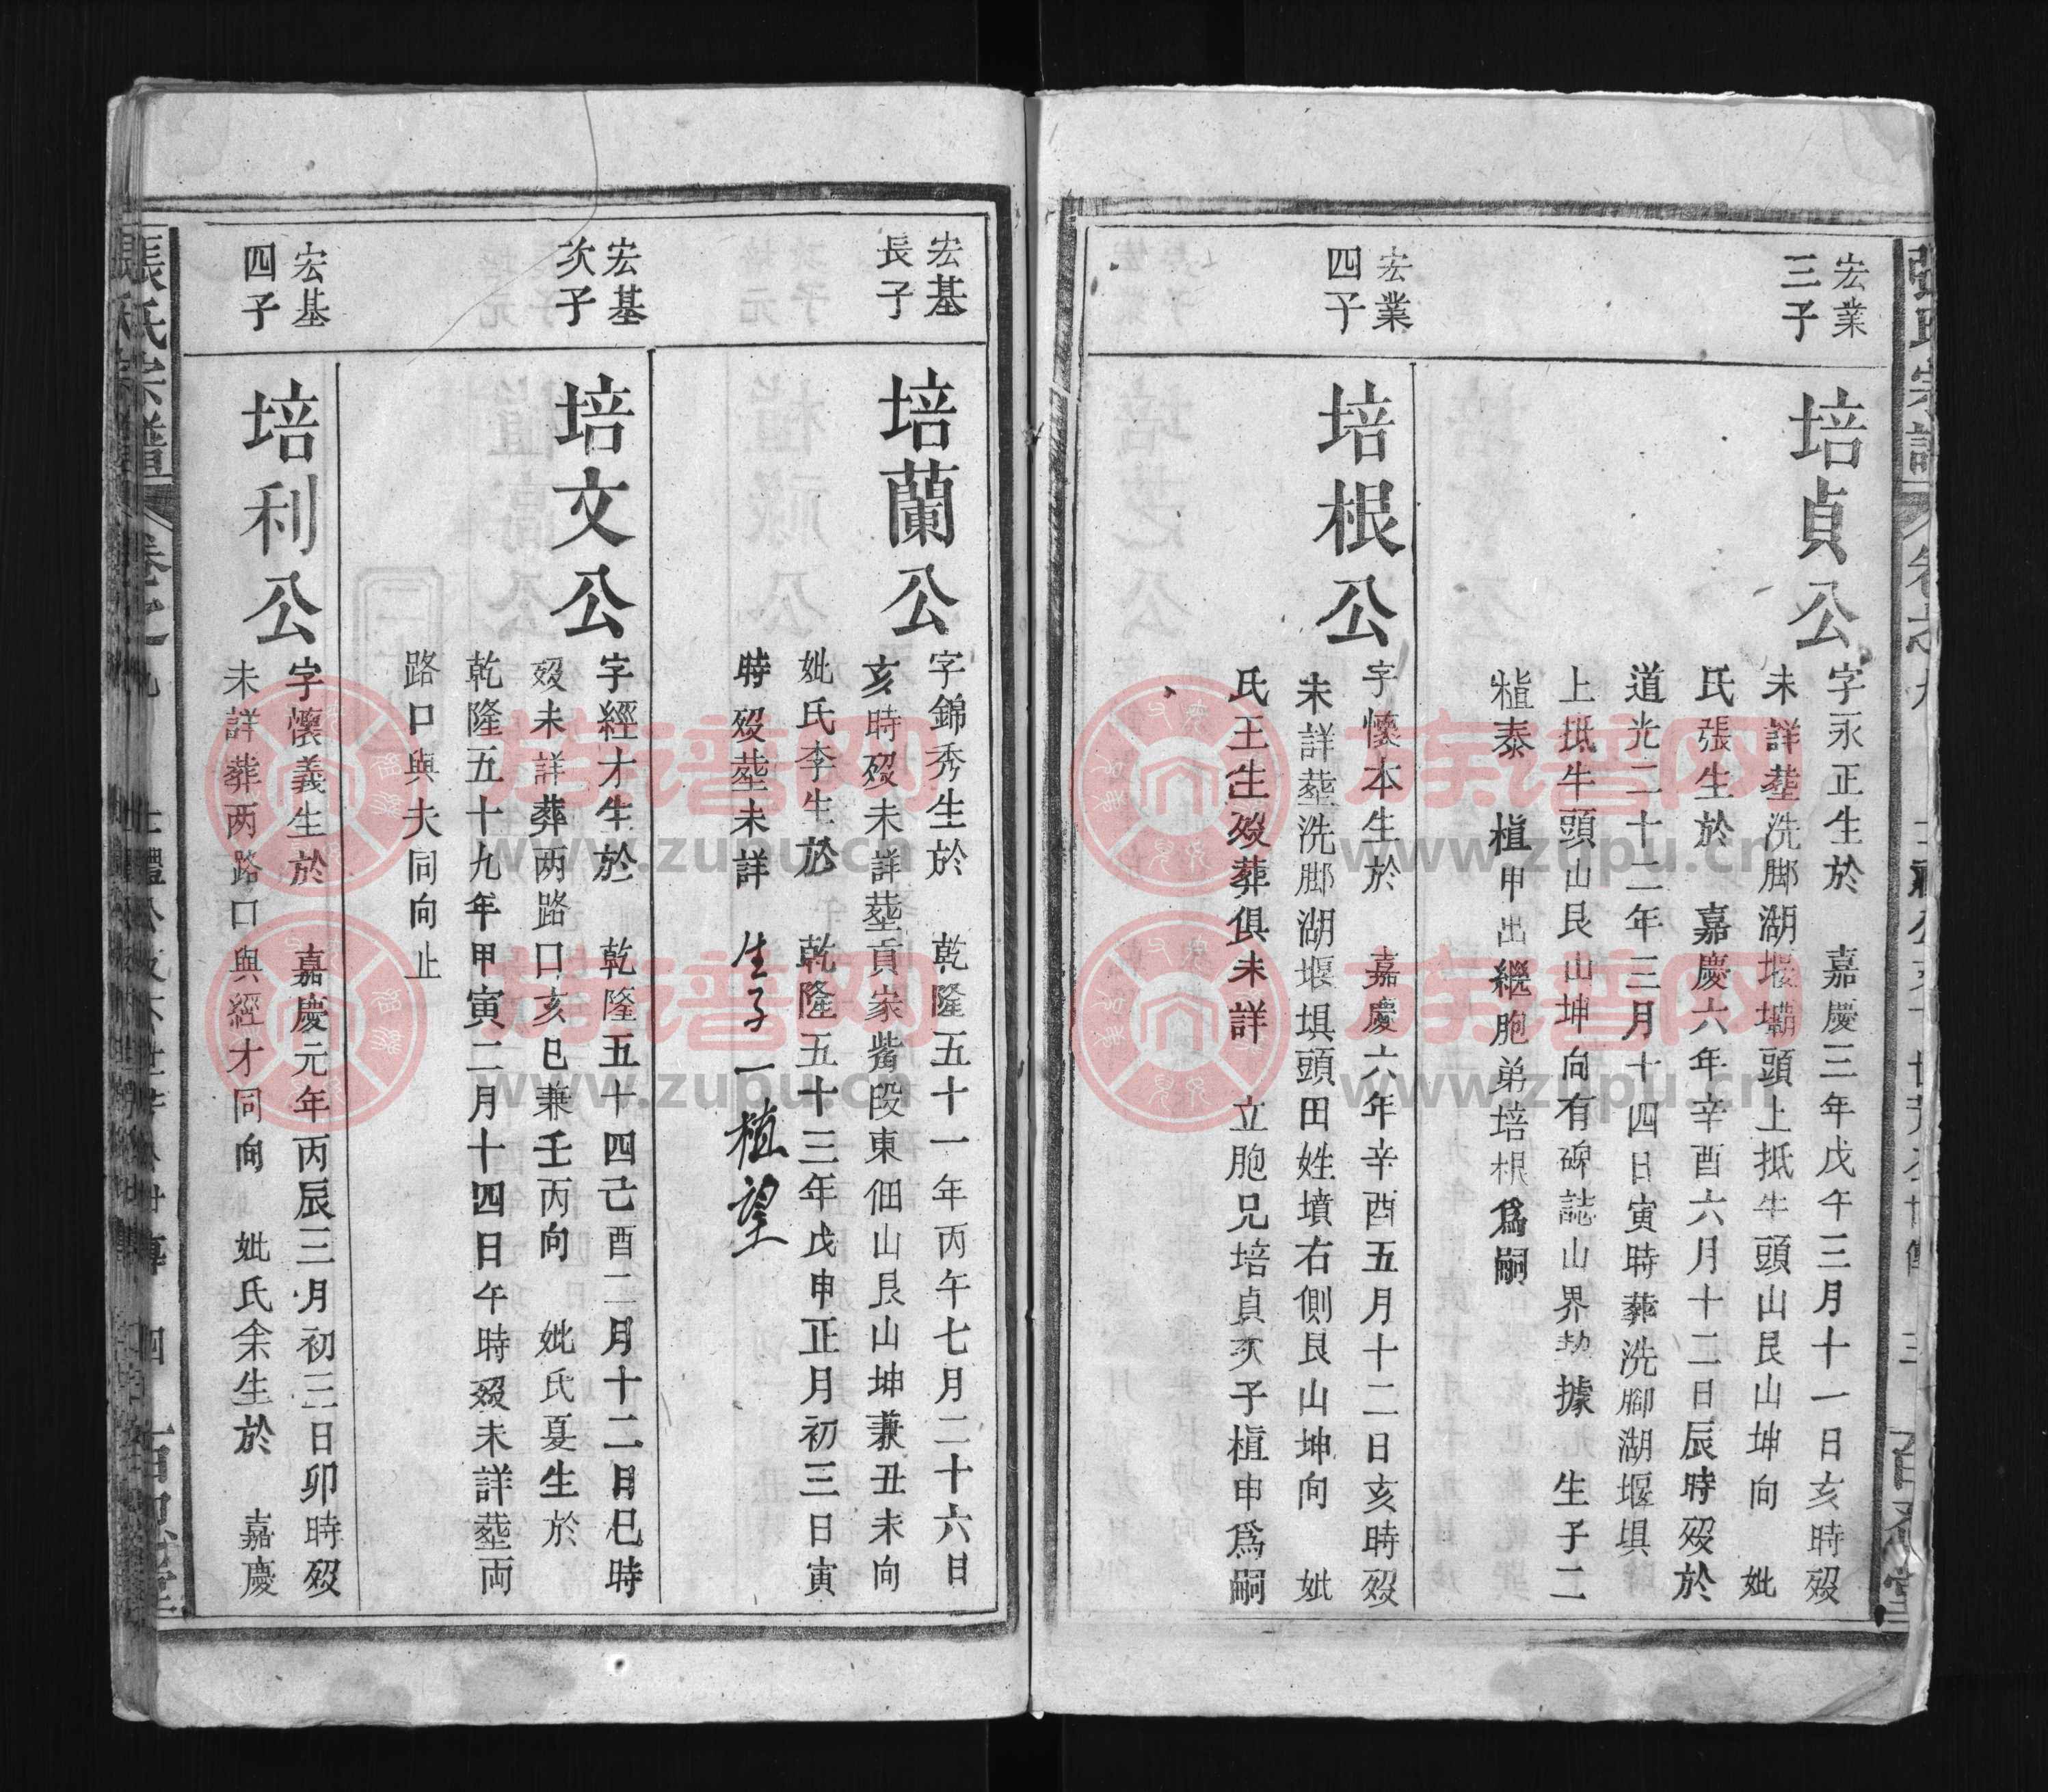 宏業
三子
培貞公
字永正生於 嘉慶三年戊午三月十一日亥時殁
未詳塟洗脚湖堰壩頭上抵牛頭山艮山坤向 妣
氏張生於 嘉慶六年辛酉六月十二日辰時殁於
道光二十二年三月十四日寅時葬洗腳湖堰埧
上抵牛頭山艮山坤向有碑誌山界𠜇據 生子二
植泰 植申出繼胞弟培根爲嗣
宏業
四子
培根公
字懷本生於 嘉慶六年辛酉五月十二日亥時殁
未詳塟洗脚湖堰埧頭田姓墳右側艮山坤向 妣
氏王生殁葬俱未詳 立胞兄培貞次子植申爲嗣
宏基
長子
培蘭公
字錦秀生於 乾隆五十一年丙午七月二十六日
亥時殁未詳塟貢家觜段東佃山艮山坤兼丑未向
妣氏李生於 乾隆五十三年戊申正月初三日寅
時殁塟未詳 生子一植望
宏基
次子
培文公
字經才生於 乾隆五十四己酉二月十二日巳時
殁未詳葬两路口亥巳兼壬丙向 妣氏夏生於
乾隆五十九年甲寅二月十四日午時殁未詳塟両
路口與夫同向止
宏基
四子
培利公
字懷義生於 嘉慶元年丙辰三月初三日卯時殁
未詳葬两路口與經才同向 妣氏余生於 嘉慶
張氏宗譜 卷之九
族谱网
www.zupu.cn
族谱网
www.zupu.cn
族谱网
www.zupu.cn
族谱网
www.zupu.cn